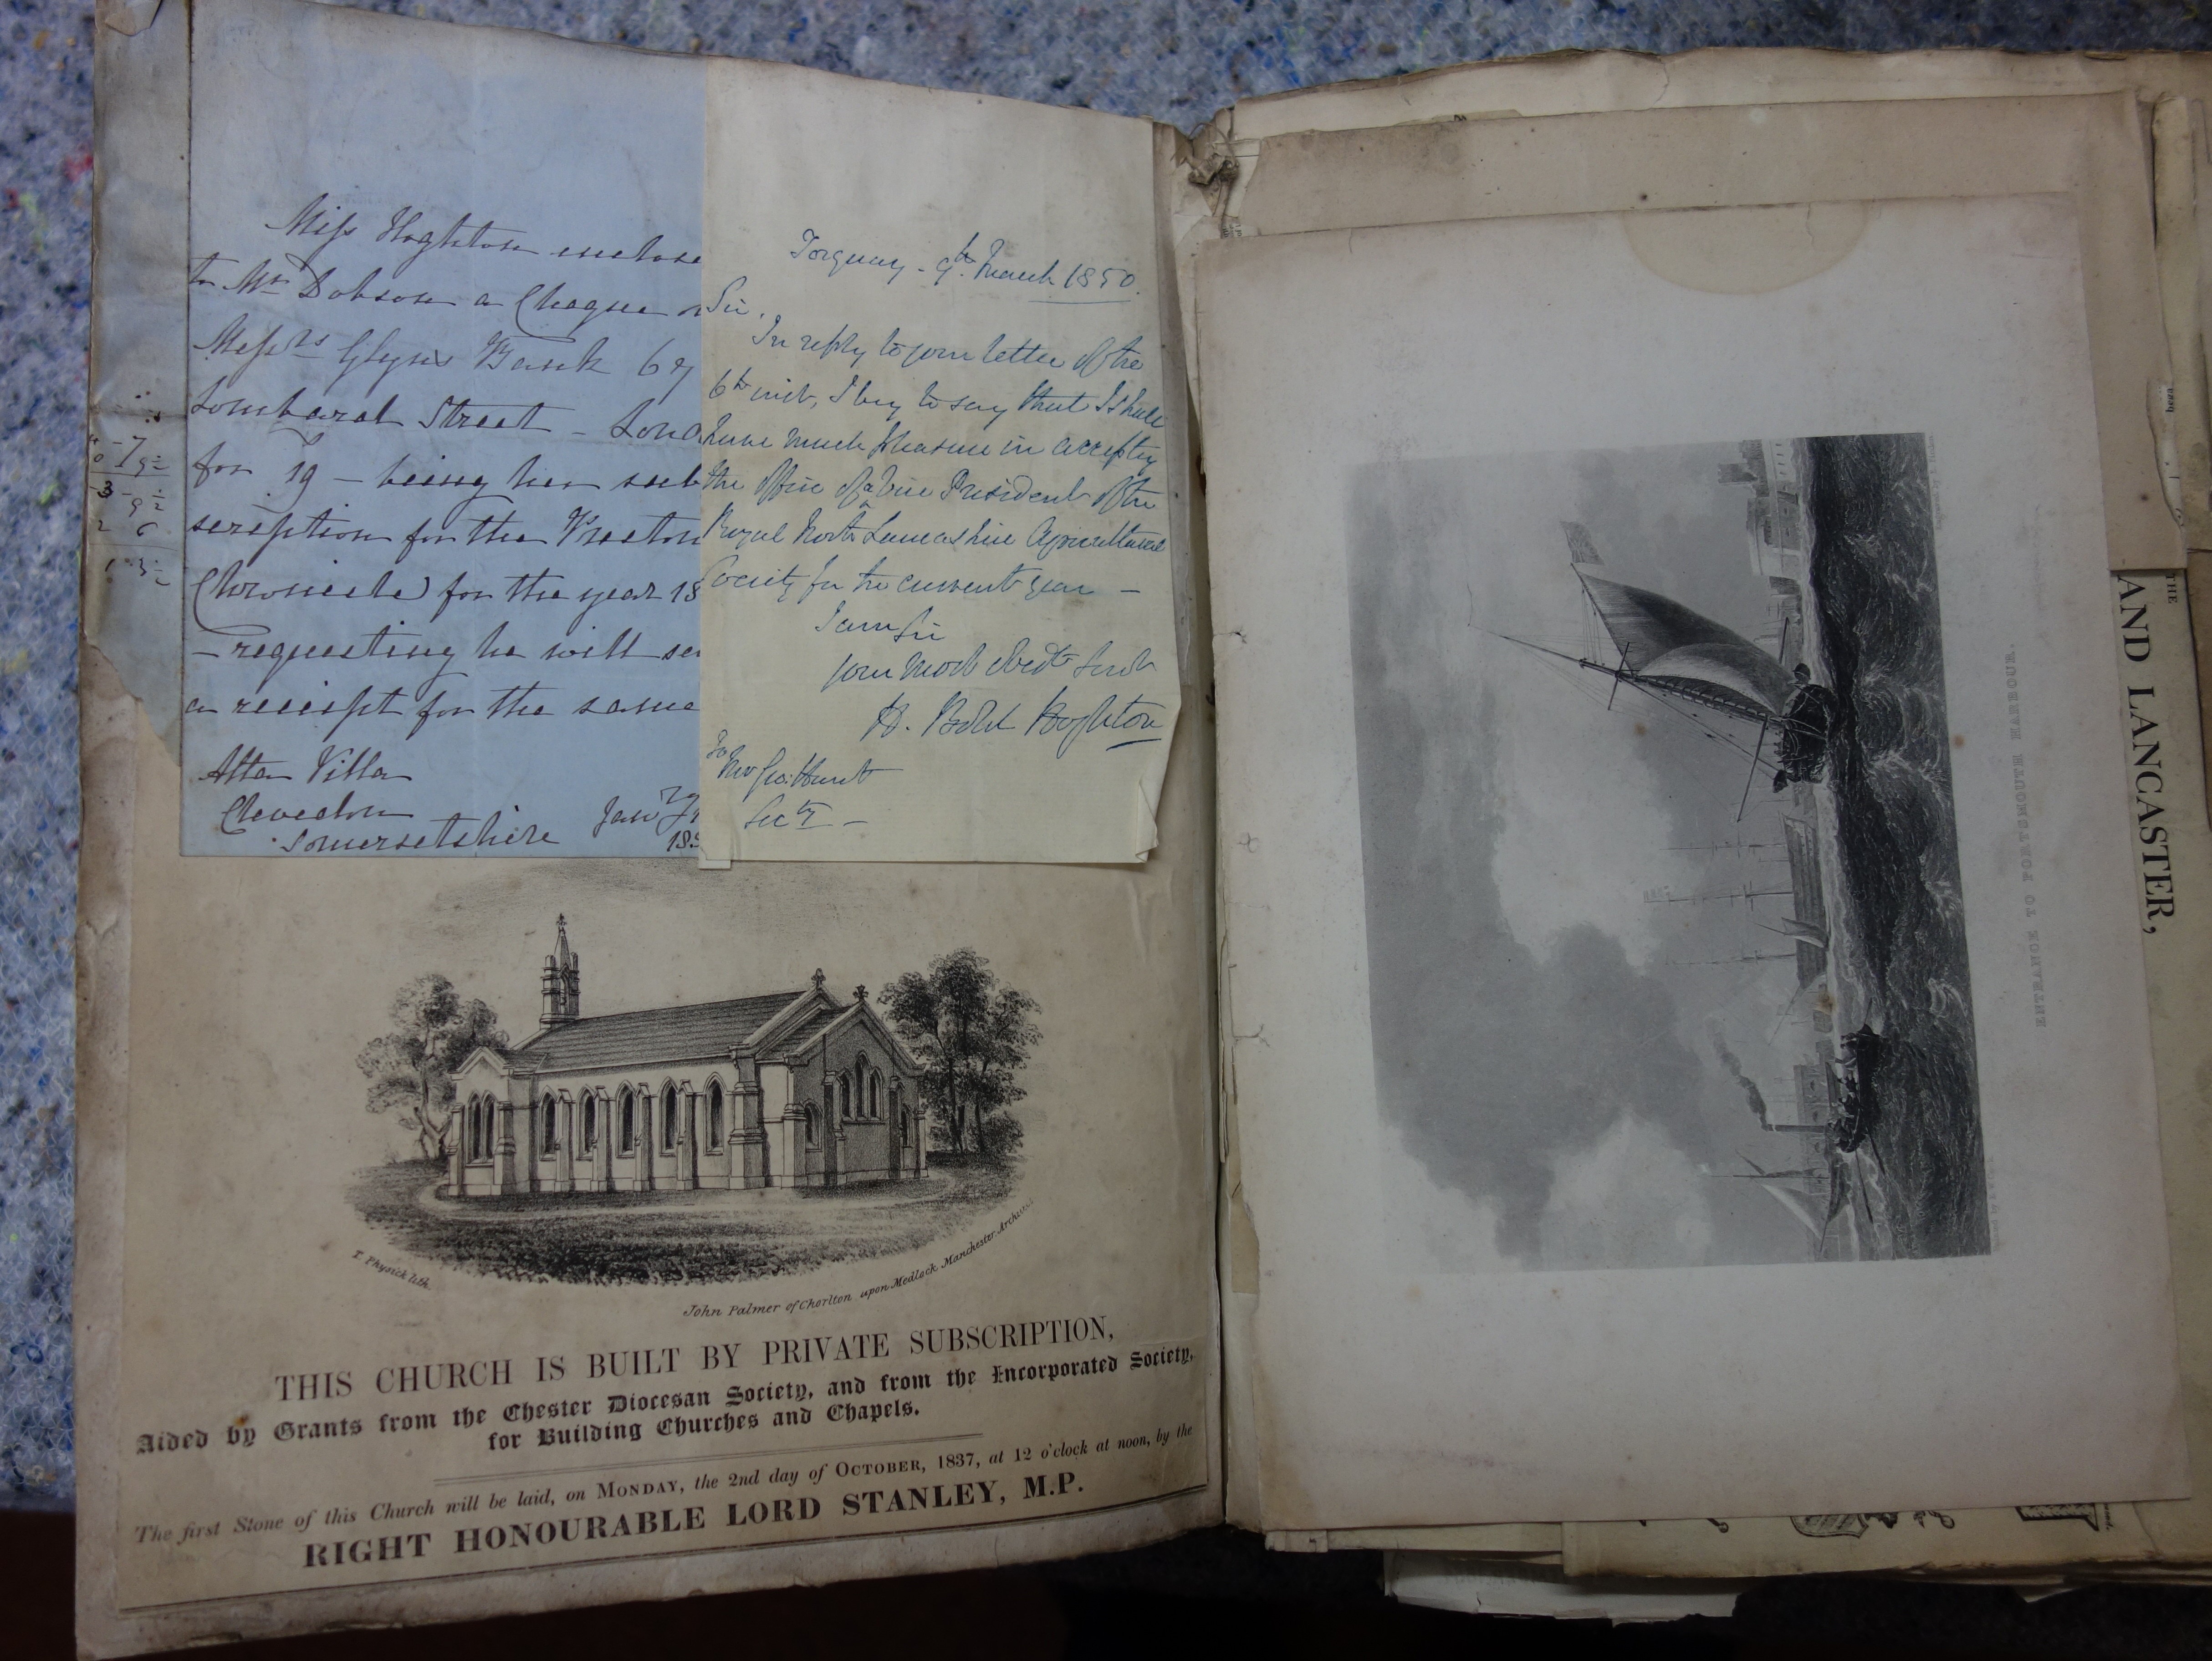 Miss Hoghton enclose
to Mr Dobson a Cheque
Messrs Glyns Bank 67
Lombard Street - Lond
for 19 - being her sub
scription for the Preston
Chronicle) for the year 18
- requesting he will se
a receipt for the same
Alta Villa
Clevedon
Somersetshire
Jany
Torquay - 9th March 1850.
Sir,
In reply to your letter of the
6th inst, I beg to say that I shall
have much pleasure in accepting
the office of a Vice President of the
Royal North Lancashire Agricultural
Society for the current year -
I am Sir
your most obedt Servt
H. Bold Hoghton
To
Mr Geo: Hunt
Secty -
T. Physick lith.
John Palmer of Chorlton upon Medlock Manchester. Architect
THIS CHURCH IS BUILT BY PRIVATE SUBSCRIPTION,
Aided by Grants from the Chester Diocesan Society, and from the Incorporated Society,
for Building Churches and Chapels.
The first Stone of this Church will be laid, on MONDAY, the 2nd day of OCTOBER, 1837, at 12 o'clock at noon, by the
RIGHT HONOURABLE LORD STANLEY, M.P.
ENTRANCE TO PORTSMOUTH HARBOUR.
THE
AND LANCASTER,